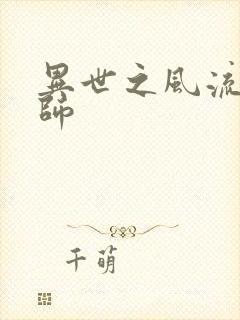 異世之風流
師
千萌